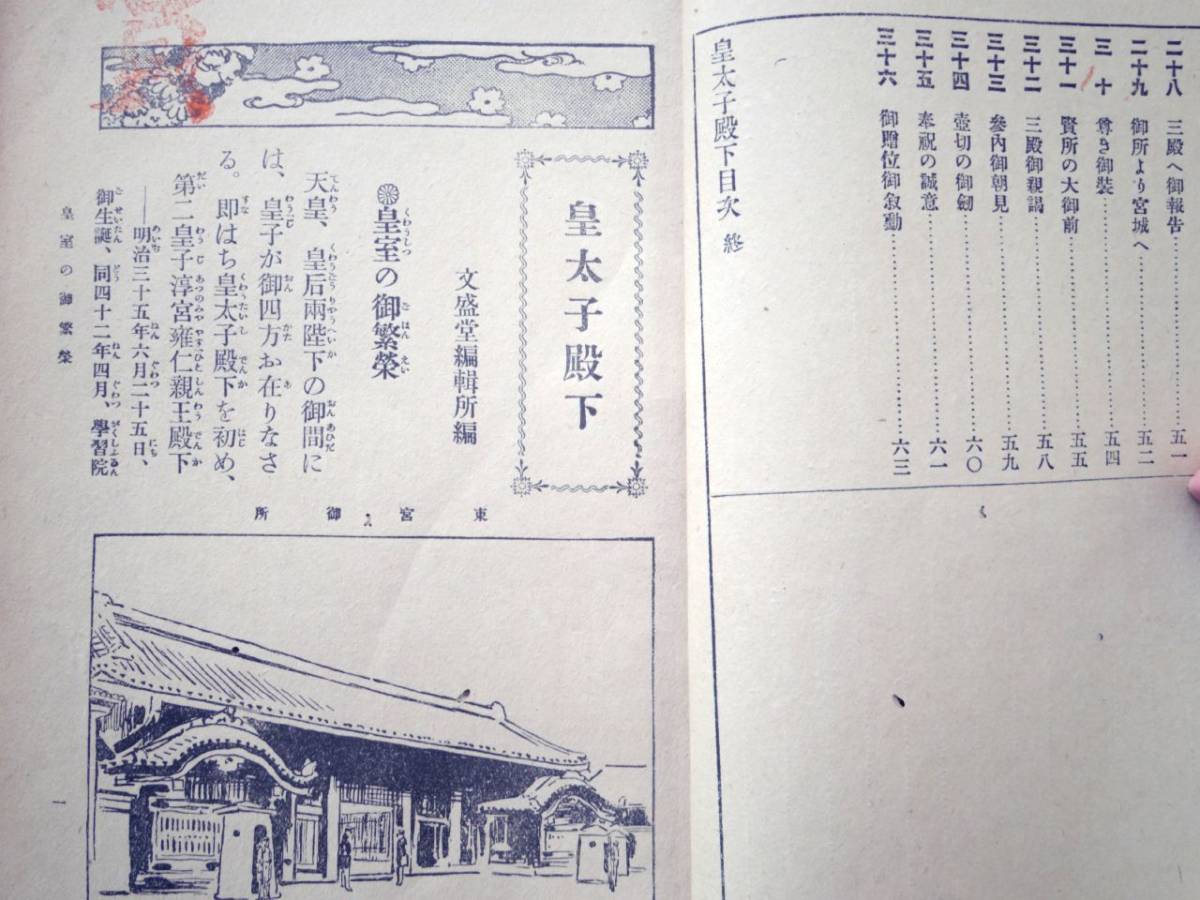 二十八 三殿へ御報告……五一
二十九 御所より宮城へ……五二
三十 尊き御裝……五四
三十一 賢所の大御前……五五
三十二 三殿御親謁……五八
三十三 參內御朝見……五九
三十四 壺切の御劒……六〇
三十五 奉祝の誠意……六一
三十六 御贈位御敍勳……六三
皇太子殿下目次 終
皇太子殿下
文盛堂編輯所編
皇室の御繁榮
天皇、皇后兩陛下の御間に
は、皇子が御四方お在りなさ
る。卽はち皇太子殿下を初め、
第二皇子淳宮雍仁親王殿下
――明治三十五年六月二十五日、
御生誕、同四十二年四月、學習院
皇室の御繁榮
一
東宮御所